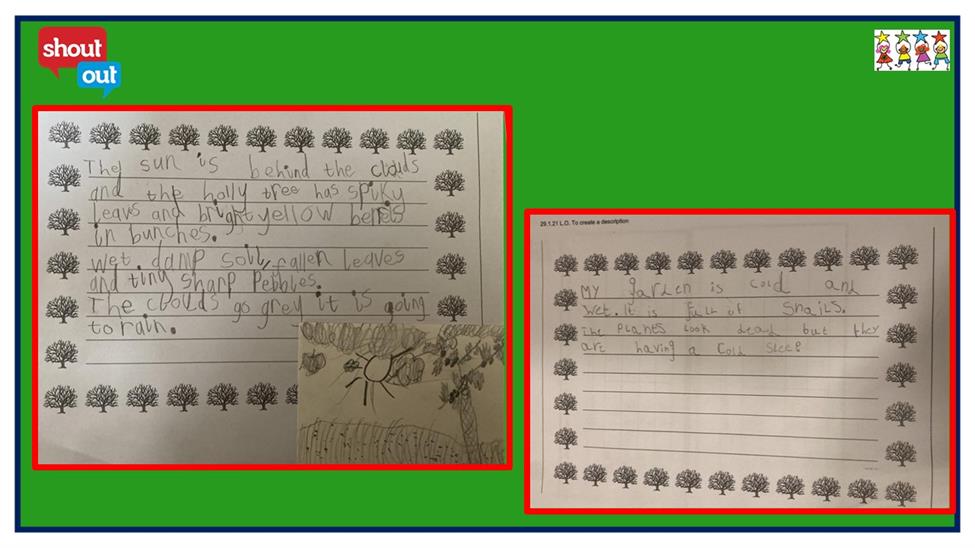 shout
out
The sun is behind the clouds
and the holly tree has spiky
leavs and bright yellow berreis
in bunches.
wet, damp soil, fallen leaves
and tiny sharp Pebbles.
The clouds go grey it is going
to rain.
29.1.21 L.O. To create a description
My garden is cold and
wet. It is full of snails.
The plants look dead but they
are having a cold sleep